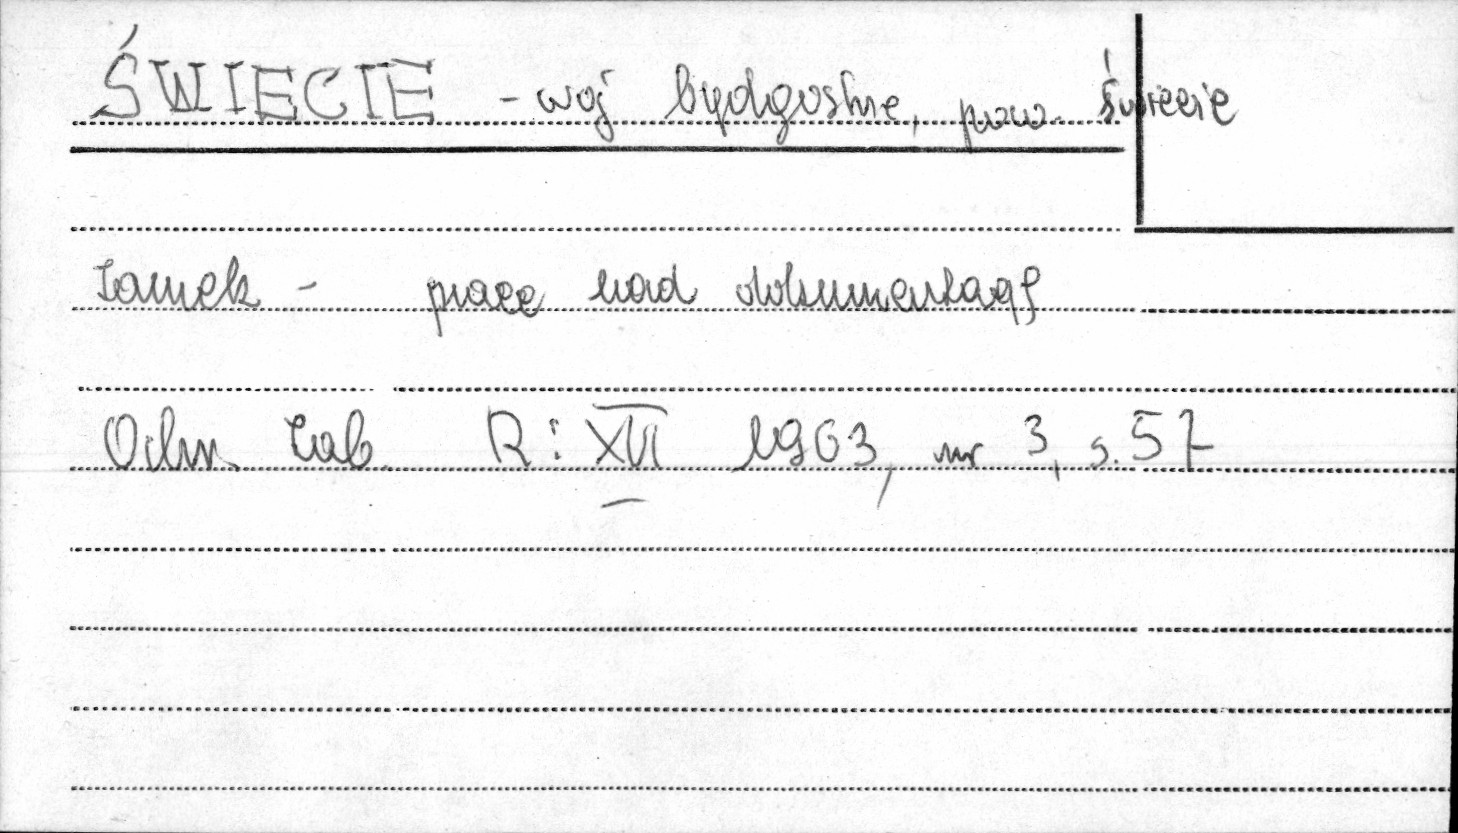 ŚWIECIE - woj bydgoskie, pow. Świecie
Zamek - prace nad dokumentacją
Ochr. Zab. R: XVI 1963, nr 3, s. 57